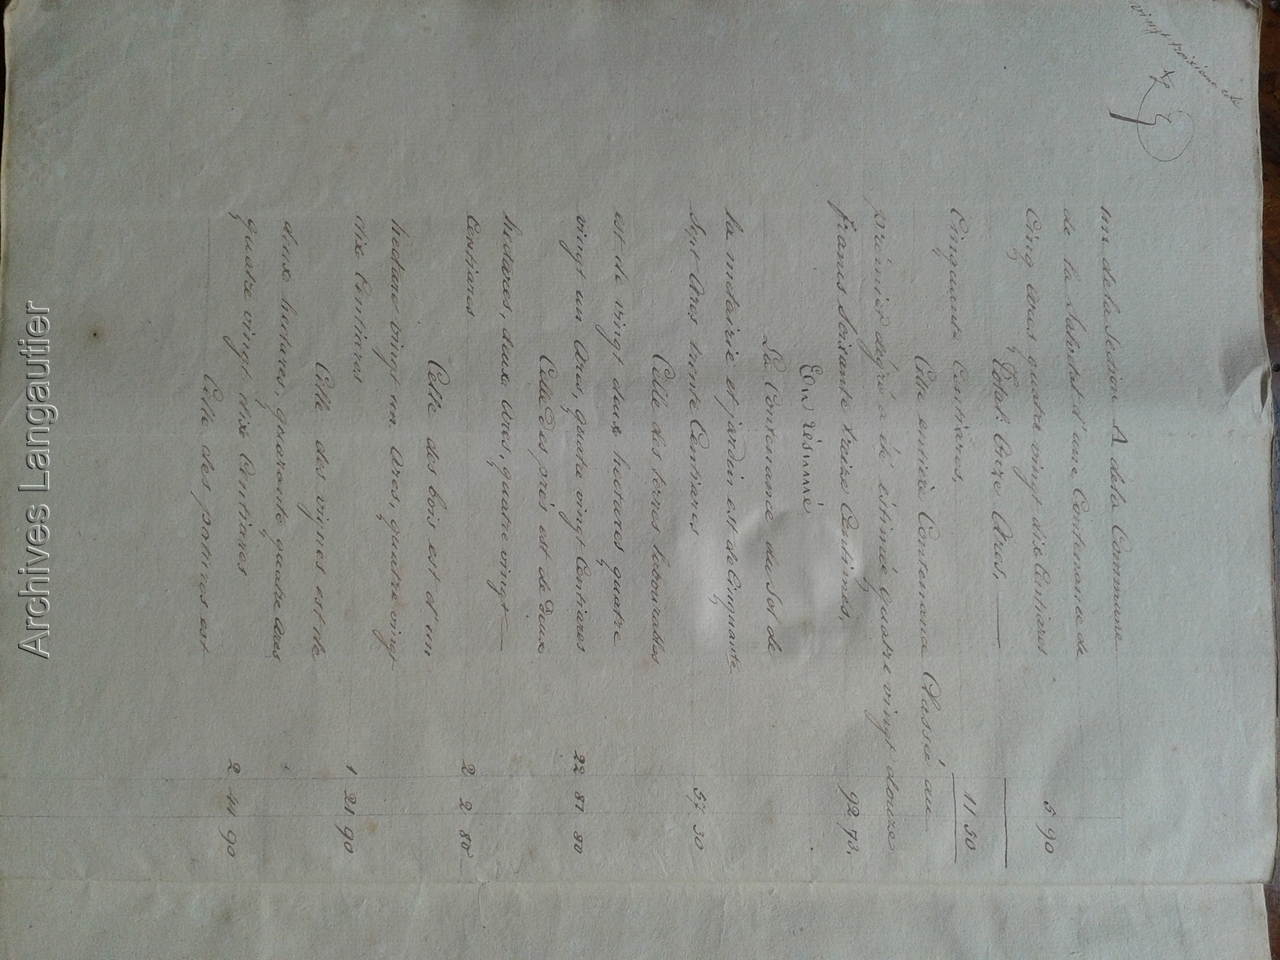 vingt troisième
m de la Section A de la Commune
de la Salvetat d'une Contenance de
Cinq ares quatre vingt dix Centiares 5 90
Total: Onze Ares,
Cinquante Centiares, 11 50
Cette entière Contenance Classé au
premier degré a été estimé quatre vingt douze
francs soixante treize Centimes, 92.73.
En résumé
La Contenance du sol de
la métairie et jardin est de Cinquante
Sept Ares trente Centiares 57 30
Celle des terres labourables
est de vingt deux hectares quatre
vingt un Ares, quatre vingt Centiares 22 81 80
Celle des prés est de Deux
hectares, deux Ares, quatre vingt
Centiares 2 2 80
Celle des bois est d'un
hectare vingt un Ares, quatre vingt
dix Centiares 1 21 90
Celle des vignes est de
deux hectares, quarante quatre ares
quatre vingt dix Centiares 2 44 90
Celle des patures est
Archives Langautier